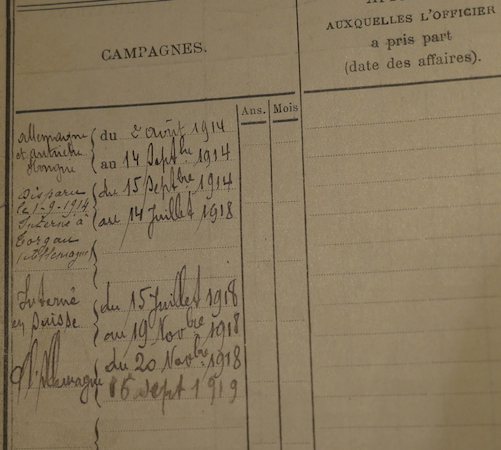 AUXQUELLES L'OFFICIER
a pris part
(date des affaires).
CAMPAGNES.
Ans. Mois
Allemagne du 2 août 1914
et autriche
hongrie au 14 Septbre 1914
Disparu du 15 Septbre 1914
le 1-9-1914
Interné à au 14 Juillet 1918
Torgau
(Allemagne)
Interné du 15 Juillet 1918
en Suisse au 19 Novbre 1918
du 20 Novbre 1918
Allemagne 16 Sept 1919